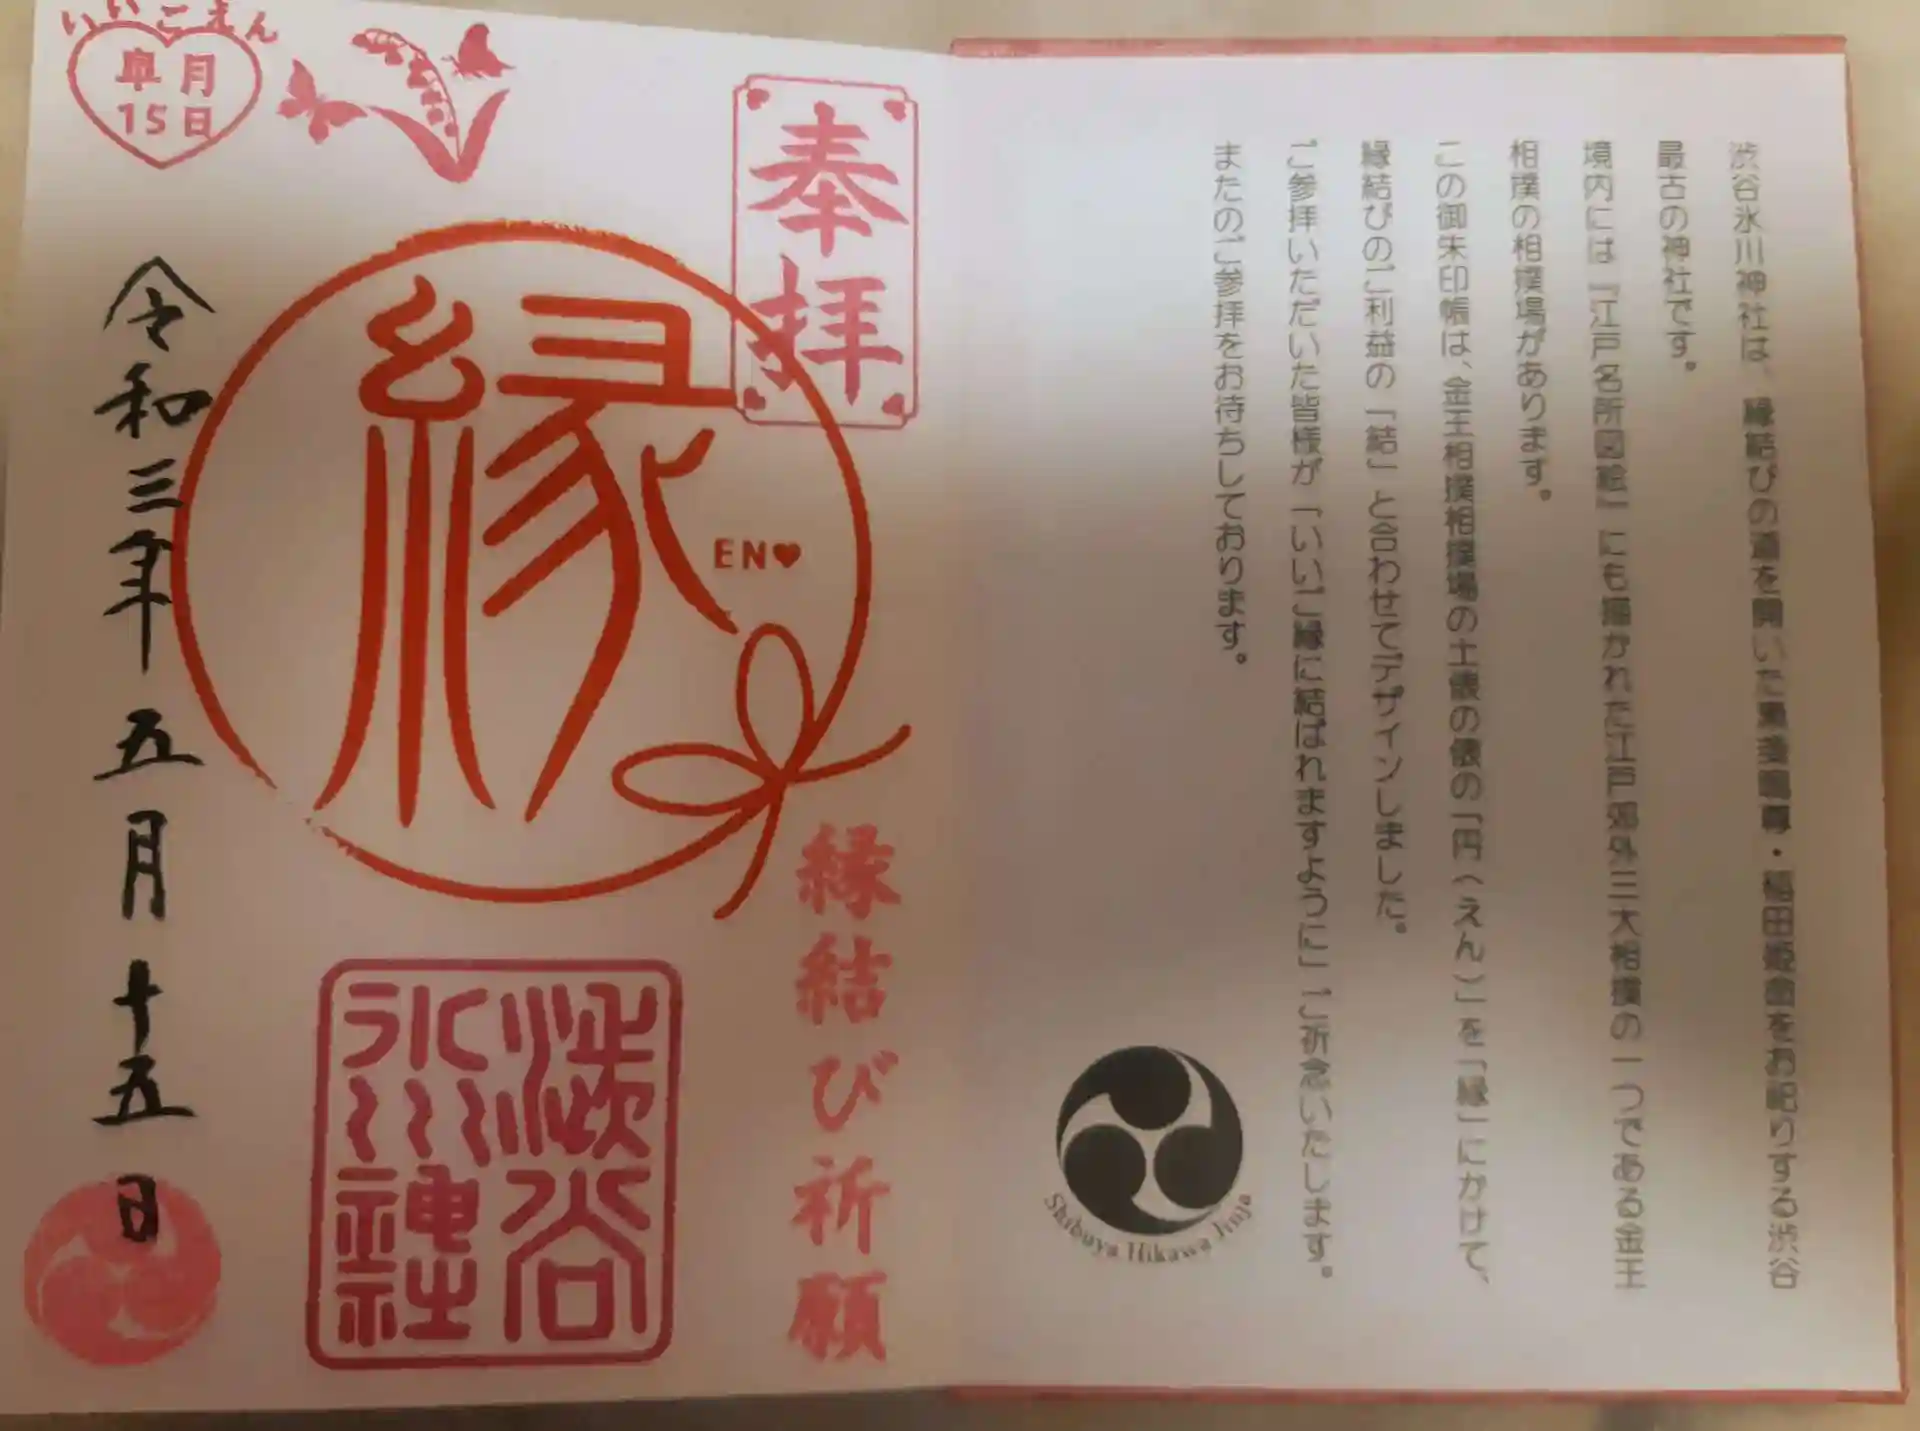 渋谷氷川神社は、縁結びの道を開いた素盞鳴尊・稲田姫命をお祀りする渋谷
最古の神社です。
境内には『江戸名所図絵』にも描かれた江戸郊外三大相撲の一つである金王
相撲の相撲場があります。
この御朱印帳は、金王相撲相撲場の土俵の俵の「円（えん）」を「縁」にかけて、
縁結びのご利益の「結」と合わせてデザインしました。
ご参拝いただいた皆様が「いいご縁に結ばれますように」ご祈念いたします。
またのご参拝をお待ちしております。
Shibuya Hikawa Jinja
奉拝
縁結び祈願
縁
EN♥
渋谷
氷川神社
いいごえん
皐月
15日
令和三年五月十五日